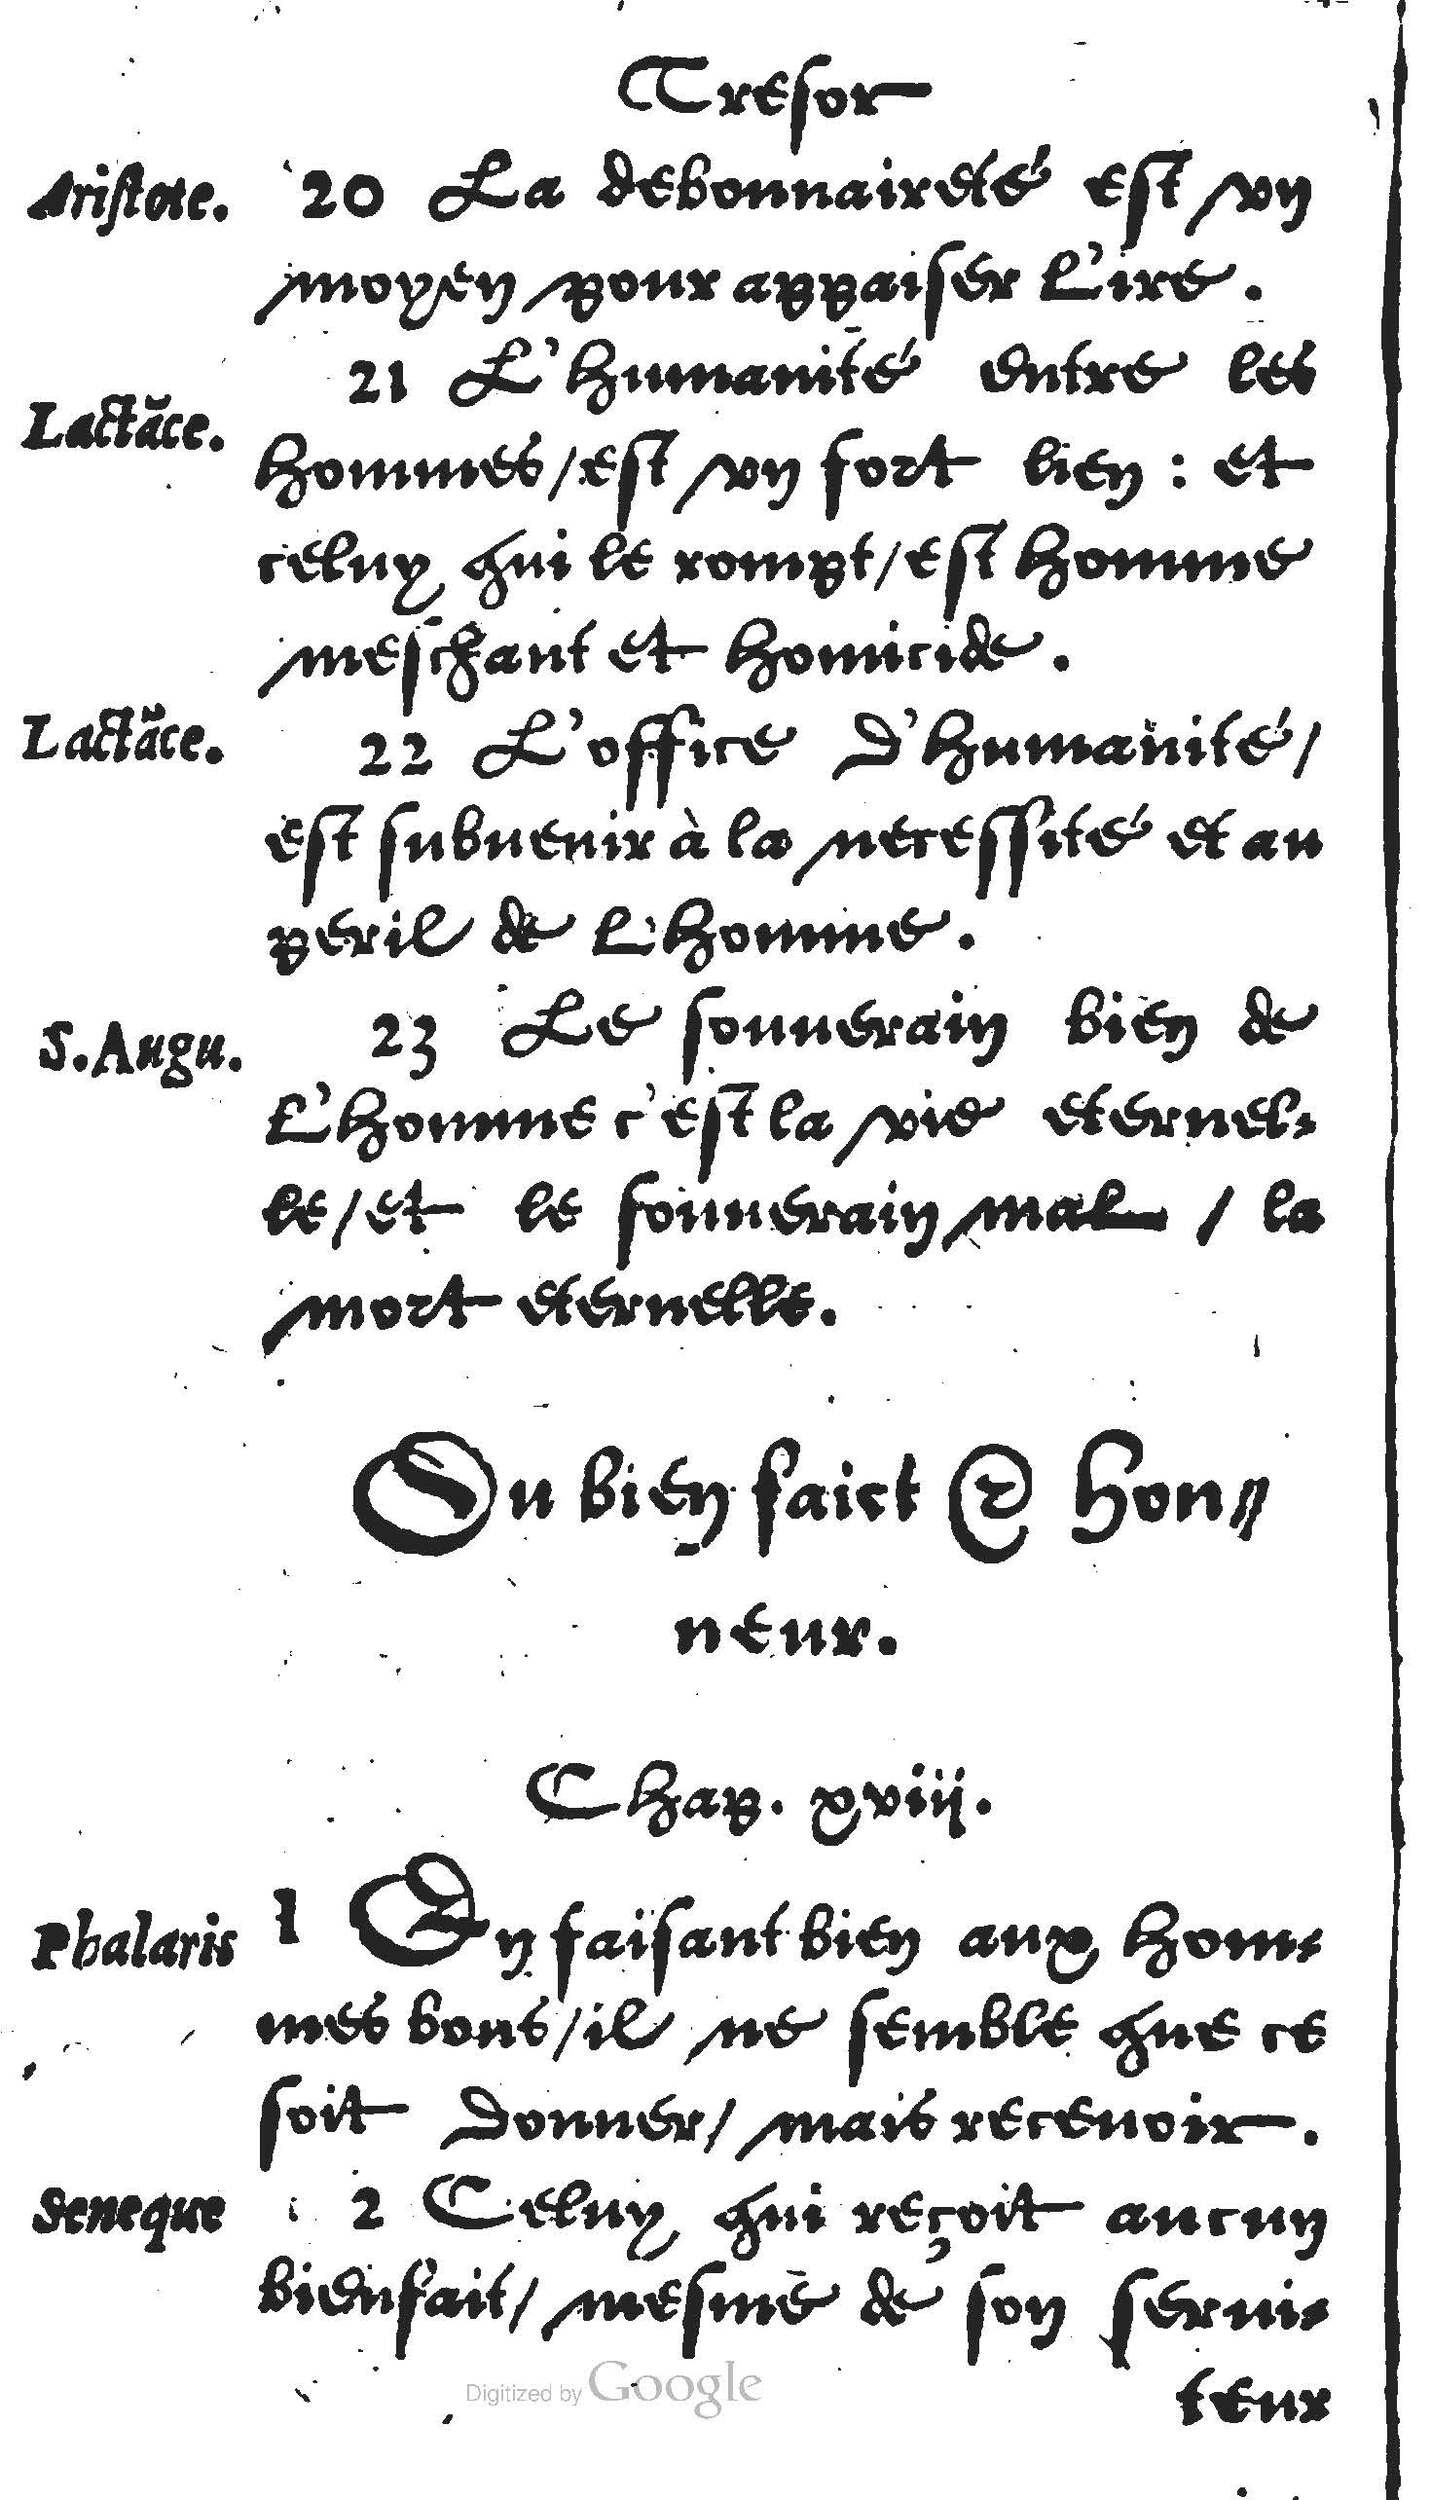 Tresor
Aristote. 20 La debonnaireté est vn
moyen pour appaiser l'ire.
21 L'humanité entre les
Lactãce. hommes/est vn fort bien : et
celuy qui le rompt/est homme
meschant et homicide.
Lactãce. 22 L'office d'humanité/
est subuenir à la necessité et au
peril de l'homme.
S.Augu. 23 Le souuerain bien de
l'homme c'est la vie eternel-
le/et le souuerain mal / la
mort eternelle.
Du bien faict & hon-
neur.
Chap. xviij.
Phalaris 1 En faisant bien aux hom-
mes bons/il ne semble que ce
soit donner/mais receuoir.
Seneque 2 Celuy qui reçoit aucun
bienfait/mesme de son serui-
teur
Digitized by Google